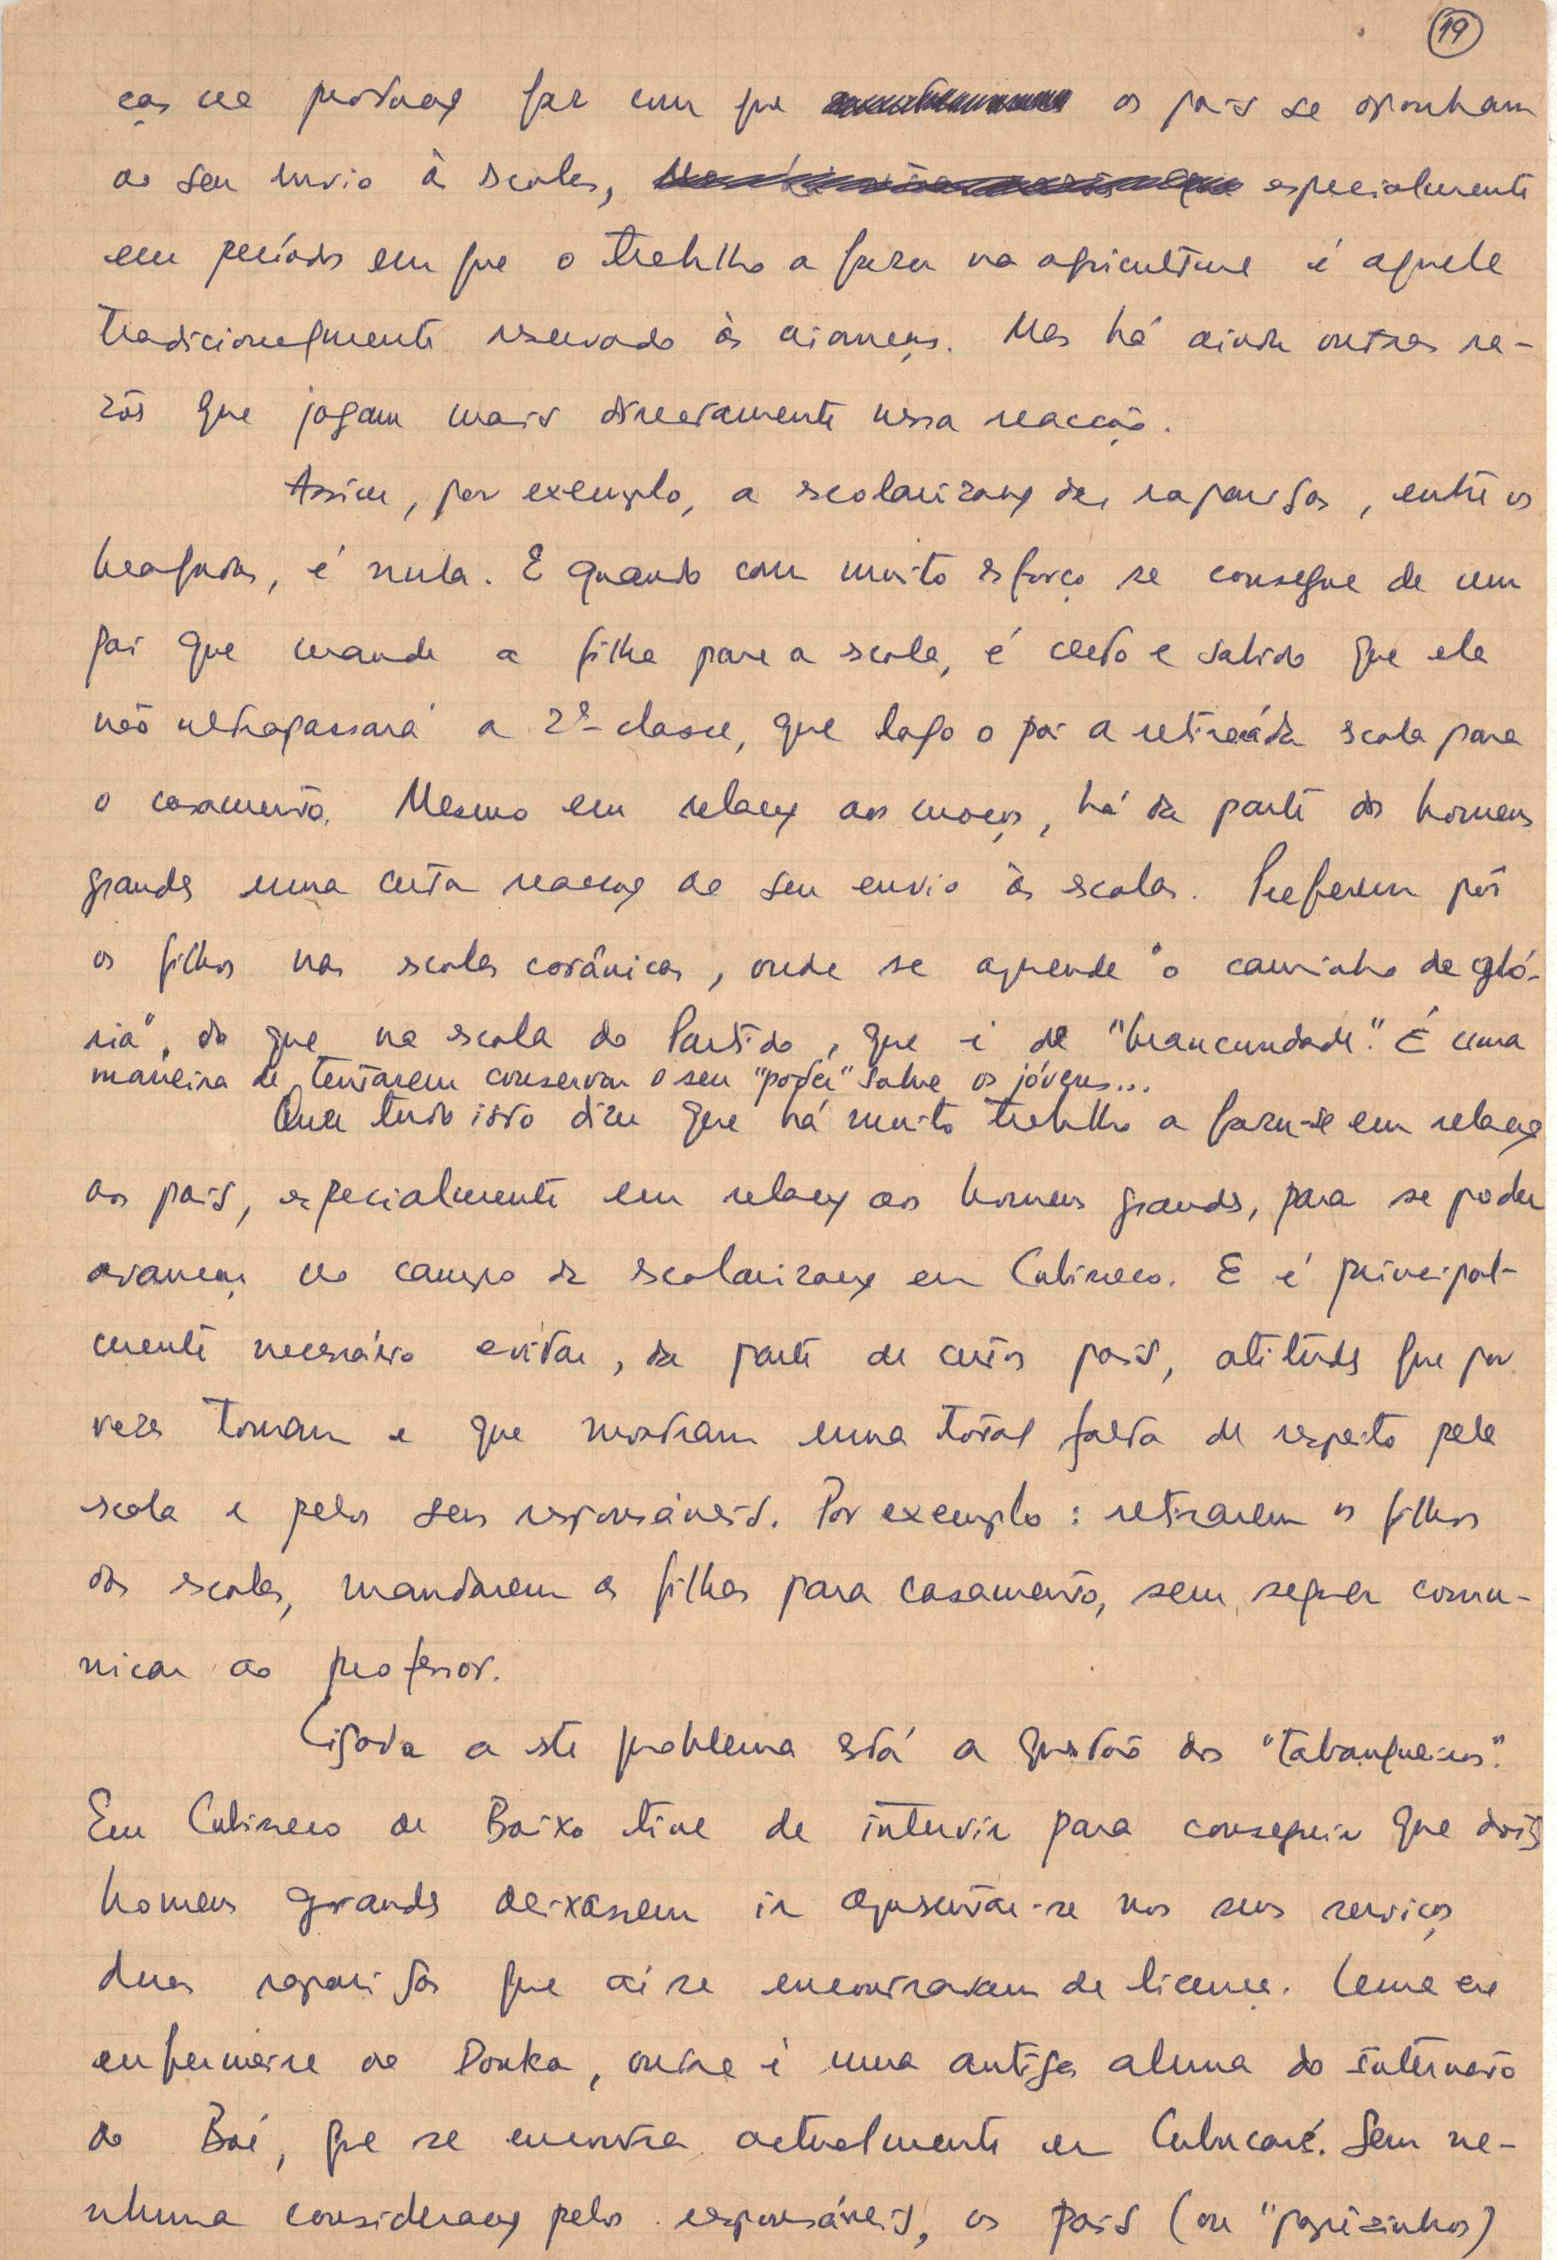 19
ças na produção faz com que os pais se oponham
ao seu envio à escola, especialmente
em períodos em que o trabalho a fazer na agricultura é aquele
tradicionalmente reservado às crianças. Mas há ainda outras ra-
zões que jogam mais directamente nessa reacção.
Assim, por exemplo, a escolarização das raparigas, entre os
beafadas, é nula. E quando com muito esforço se consegue de um
pai que mande a filha para a escola, é certo e sabido que ela
não ultrapassará a 2ª classe, que logo o pai a retirará da escola para
o casamento. Mesmo em relação aos moços, há da parte dos homens
grandes uma certa reacção ao seu envio às escolas. Preferem pôr
os filhos nas escolas corânicas, onde se aprende "o caminho da gló-
ria", do que na escola do Partido, que é de "brancundade". É uma
maneira de tentarem conservar o seu "poder" sobre os jóvens...
Quer tudo isto dizer que há muito trabalho a fazer-se em relação
aos pais, especialmente em relação aos homens grandes, para se poder
avançar no campo da escolarização em Cubisseco. E é principal-
mente necessário evitar, da parte de certos pais, atitudes que por
vezes tomam e que mostram uma total falta de respeito pela
escola e pelos seus responsáveis. Por exemplo: retirarem os filhos
das escolas, mandarem as filhas para casamento, sem sequer comu-
nicar ao professor.
Ligada a este problema está a questão dos "tabanqueiros".
Em Cubisseco de Baixo tive de intervir para conseguir que dois
homens grandes deixassem ir apresentar-se nos seus serviços
duas raparigas que aí se encontravam de licença. Uma era
enfermeira no Donka, outra é uma antiga aluna do Internato
do Boé, que se encontra actualmente em Cubucaré. Sem ne-
nhuma consideração pelos responsáveis, os pais (ou "papèzinhos)